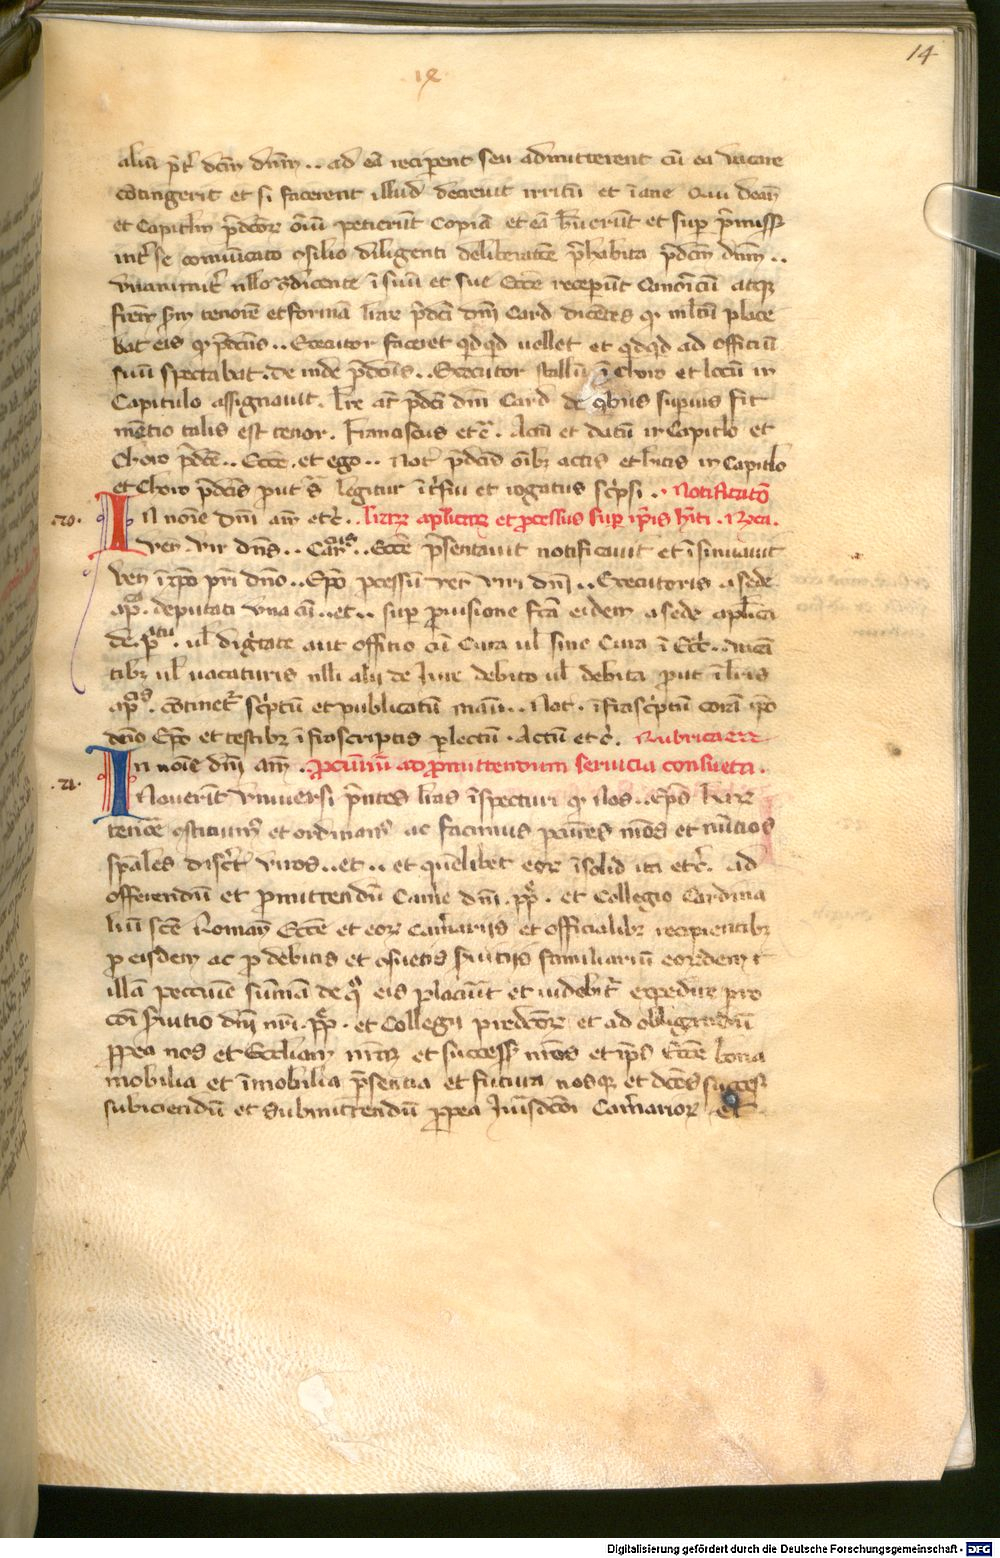 14
ix
aliū p̄t̄ dcm̄ dnm̄ .. ad eā reciperent seu admitterent cū ea vacare
cōtingerit et si facerent illud decreuit irritū et īane Qui decan̄
et Capitlm̄ p̄dcōꝝ oīū petierūt Copiā et eā h̄uerūt et suꝑ p̄miss̄
int̄ se comūicato ꝯsilio diligenti deliberatōe p̄habita p̄dcm̄ dnm̄ ..
vnanimit̄ nllo ꝯ̄dicente ī suū et sue Ecc̄e receperūt Canōicū atqꝫ
fr̄em scd̄m tenorē et formā lr̄are p̄dcī dnī Card dicētes ꝙ m̄ltū place
bat eis ꝙ p̄dcūs .. Executor faceret qdqd uellet et qdqd ad officiū
suū spectabat . de inde p̄dcūs .. Executor stallū ī Choro et locū in
Capitulo assignauit . lr̄e at̄ p̄dcī dnī Card de qbus supius fit
mētio talis est tenor . Franciscus etc̄ . Actū et datū in Capitlo et
Choro p̄dcē .. Ecc̄e . et ego .. Not̄ p̄dcīs oībꝫ actis et h̄itis in Capitlo
et Choro p̄dcīs put s̄ legitur īt̄fui et rogatus sc̄psi . Notificatō
.20. In noīe dnī am̄ etc̄ . lr̄aꝝ aplicaꝝ et ꝓcessus suꝑ ip̄is h̄iti . Rca .
Ven . vir dn̄s .. Canō9 .. Ecc̄e p̄sentauit notificauit et īsinuauit
ven̄ ī xp̄o pr̄i dn̄o .. Ep̄o ꝓcessū ven̄ viri dnī .. Executoris a sede
ap̄ca . deputati vna cū .. et .. suꝑ ꝓuisione fc̄a eidem a sede aplica
de . p̄atu . ul̄ digītate aut officio cū Cura ul̄ sine Cura ī Ecc̄ .. vacā
tibꝫ ul̄ uacaturis nlli alij de Jure debito ul̄ debita put ī lr̄is
ap̄cis . cōtinet̄ sc̄ptū et publicatū manu .. Not̄ . īfrasc̄ptū corā ip̄o
dn̄o Ep̄o et testibꝫ īfrascriptis ꝑlectū . Actū etc̄ . Rubrica
.21. In noīe dnī am̄ . ꝓcuriū ad ꝓmittendum seruicia consueta .
Nouerīt vniuersi p̄ntes lr̄as īspecturi ꝙ Nos .. ep̄s
tenōe ꝯstituim9 et ordinam9 ac facimus ꝓcures nr̄os et nūtios
sp̄ales disc̄t viros .. et .. et quēlibet eoꝝ īsolid ita etc̄ . ad
offerendū et ꝓmittendū Camē dnī . pp̄ . et Collegio Cardina
liū scē Romane Ecc̄e et eoꝝ Cam̄arijs et officialibꝫ recipientibꝫ
ꝓ eisdem ac ꝓ debitis et ꝯsuetis ſuitijs familiariū eoꝝdem
illā peccuīe sūmā de qua eis placuīt et uidebit̄ expedire pro
coī ſuitio dnī nr̄i . pp̄ . et Collegij predcōꝝ et ad obligandū
ꝓpea nos et Eccliam nr̄aꝝ et success nr̄os et ip̄s Ecc̄e bona
mobilia et īmobilia p̄sentia et futura nosqꝫ et dcōs succes̄
subiciendū et submittendū ꝓpea Jurisdcōi Cam̄arioꝝ et
Digitalisierung gefördert durch die Deutsche Forschungsgemeinschaft - DFG